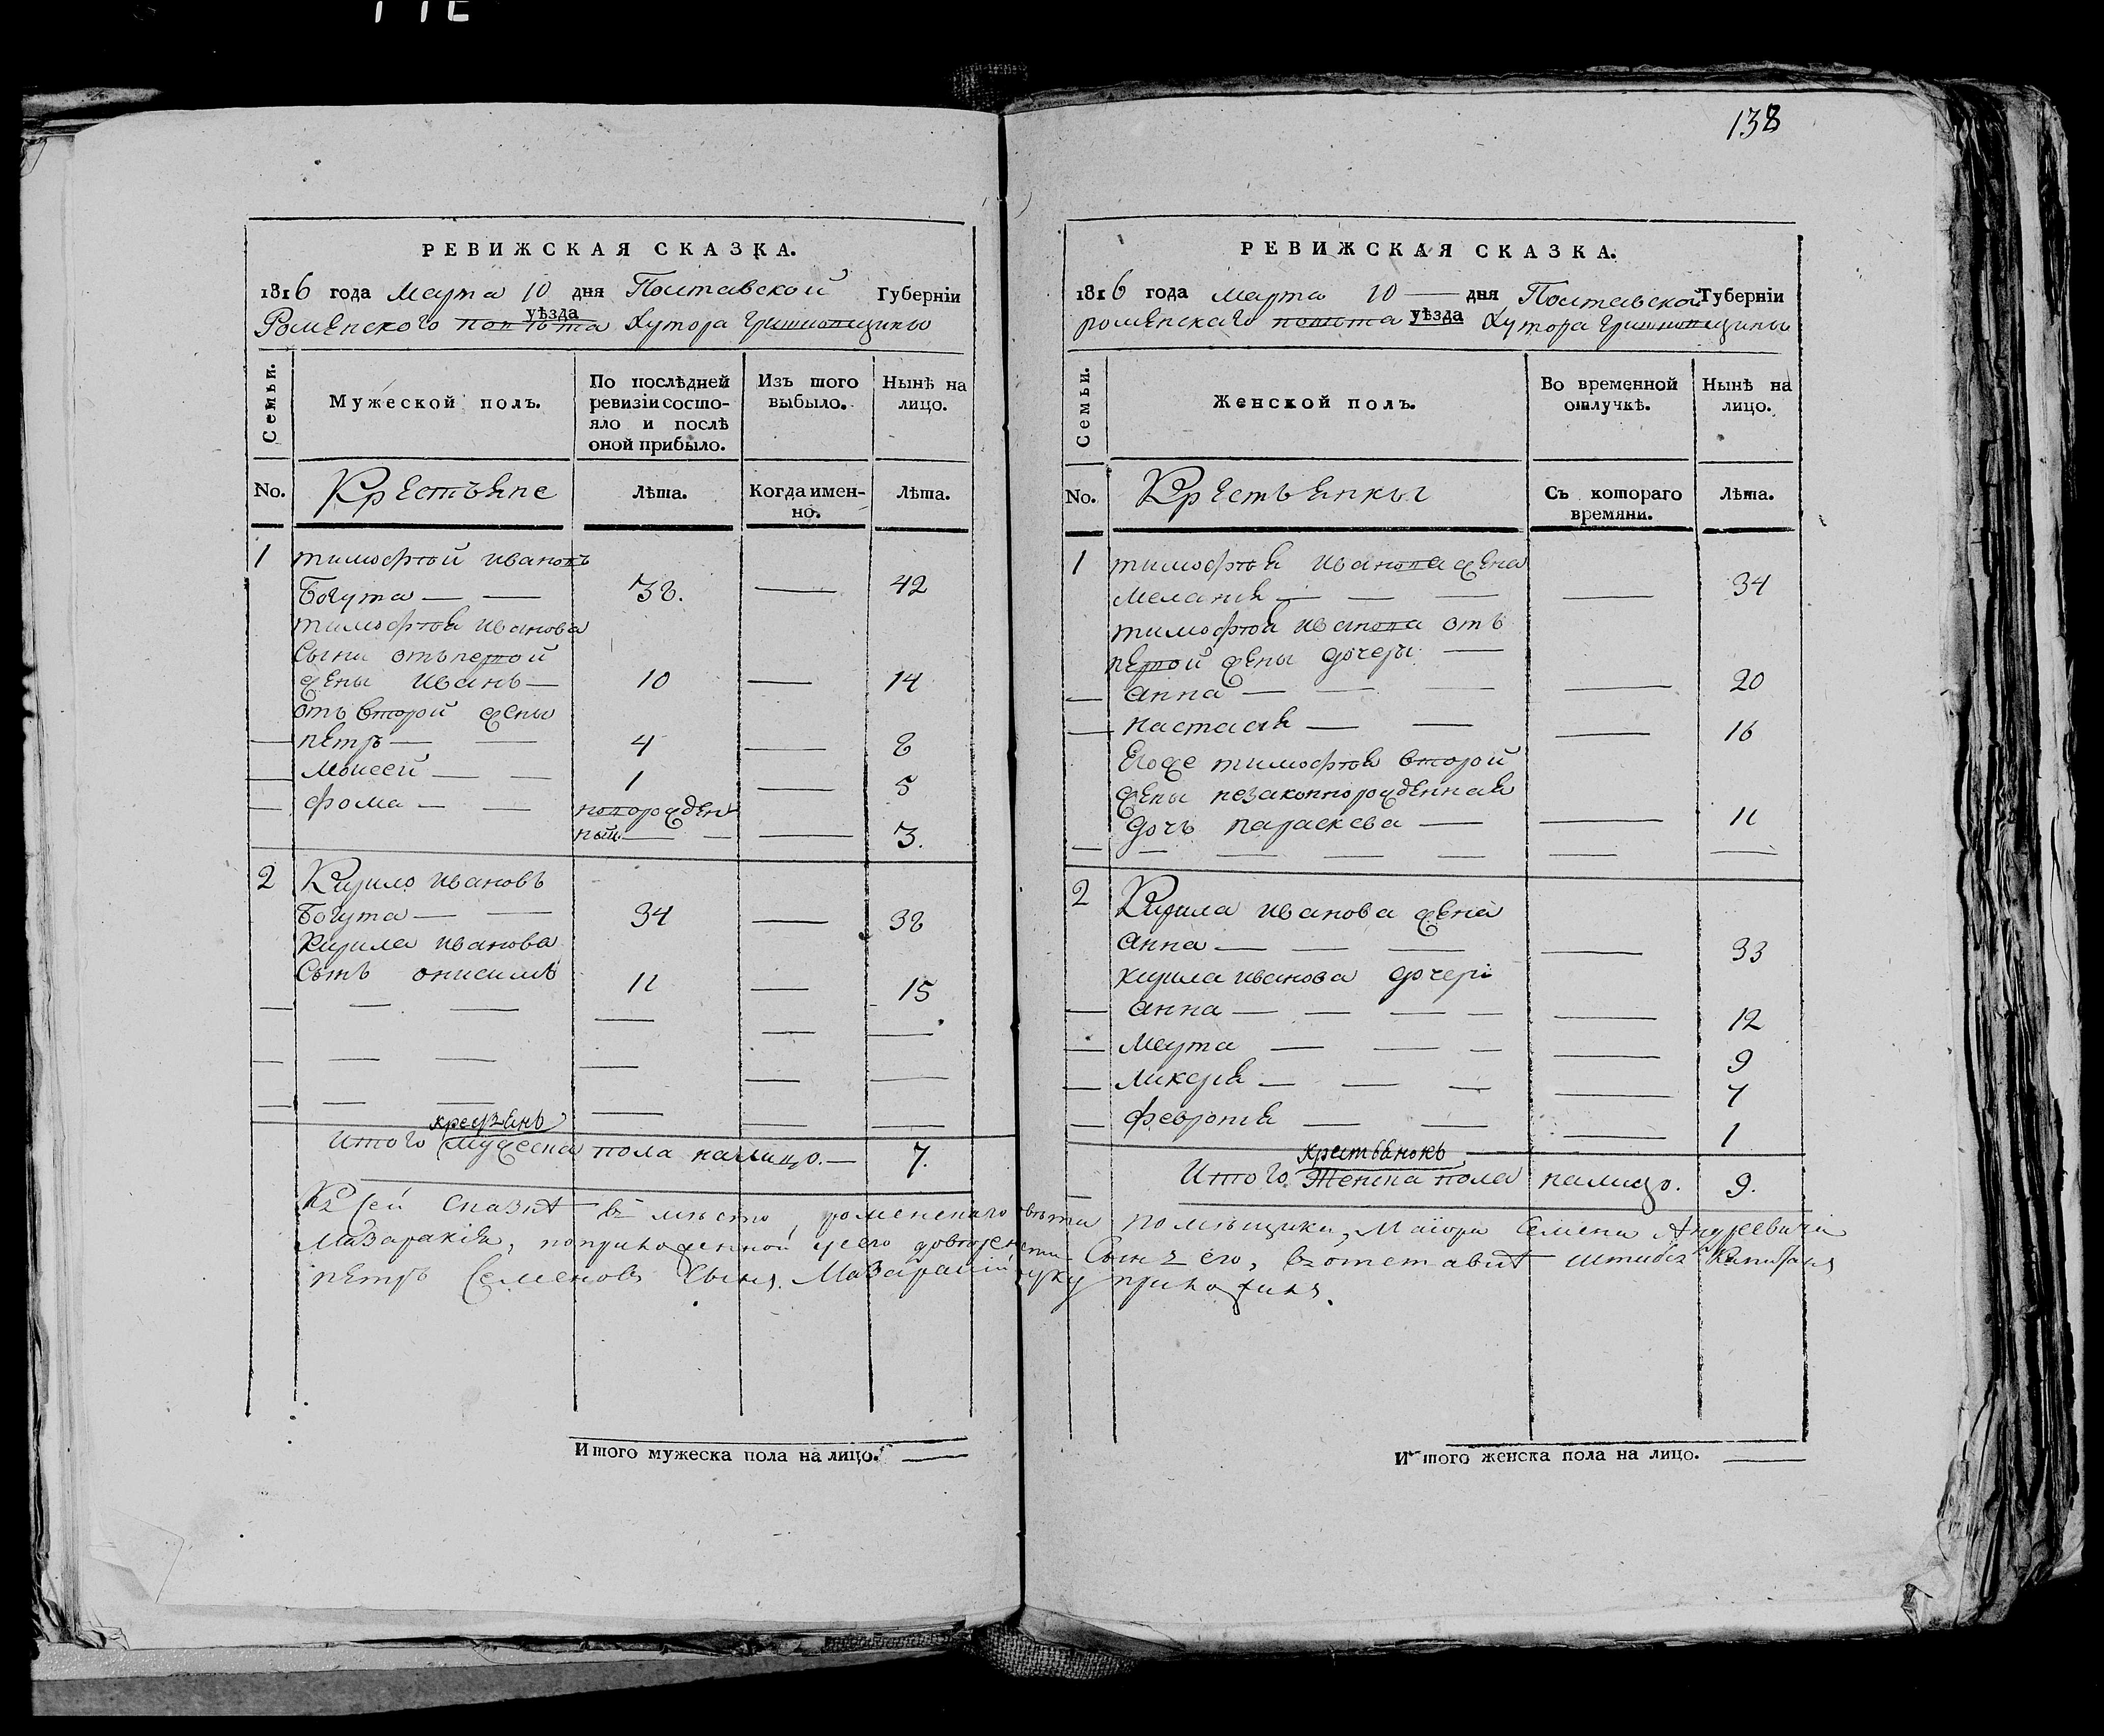 138
РЕВИЖСКАЯ СКАЗКА.
1816 года Марта 10 дня Полтавской Губерніи
уѣзда
Роменского повѣта Хутора
Семьи.
Мужеской полъ.
По послѣдней ревизіи состо-
яло и послѣ оной прибыло.
Изъ того выбыло.
Нынѣ на лицо.
No.
Крестьяне
Лѣта.
Когда имен-
но.
Лѣта.
1 тимофѣй ивановъ
Богута — — 38. — 42
тимофѣя иванова
Сыни отъ первой
жены иванъ — 10 — 14
отъ второй жены
— петръ — — 4 — 8
— Моисей — — 1 — 5
— фома — — новорожден
ный — — — 3.
2 Кирило ивановъ
Богута — — 34 — 38
Кирила иванова
Сынъ онисимъ 11 — 15
крестьянъ
Итого мужеска пола налицо. — 7.
РЕВИЖСКАЯ СКАЗКА.
1816 года марта 10 — дня Полтавской Губерніи
роменскаго повѣта уѣзда Хутора
Семьи.
Женской полъ.
Во временной отлучкѣ.
Нынѣ на лицо.
No.
Крестьянки
Съ котораго времяни.
Лѣта.
1 тимофѣя иванова жена
Мелания — — — — 34
тимофѣя иванова отъ
первой жены дочери —
— анна — — — — 20
— настасия — — — 16
Егоже тимофѣя второй
жены незаконнорожденная
дочъ параскева — — 11
— — — — — — —
2 Кирила иванова жена
анна — — — — 33
кирила иванова дочери
— анна — — — — — 12
— Марта — — — — 9
— ликеря — — — — 7
— феврония — — — 1
крестьянокъ
Итого Женска пола налицо. 9.
Къ сей сказкѣ въ мѣсто роменскаго повѣта помѣщика, Маіора Семена Андреевича
Мазаракія, по прикоженной у его довѣренности Сынъ его, въ отставкѣ штабсъ Капитанъ
петръ Семеновъ Сынъ Мазаракій руку приложилъ.
Итого мужеска пола на лицо. —
Итого женска пола на лицо. —